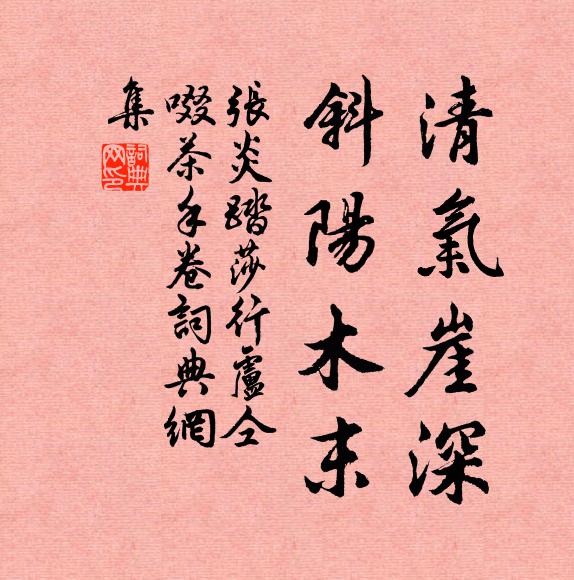 清氣崖深
斜陽木末
張炎踏莎行盧仝
啜茶手卷詞典網
集
詞典網印